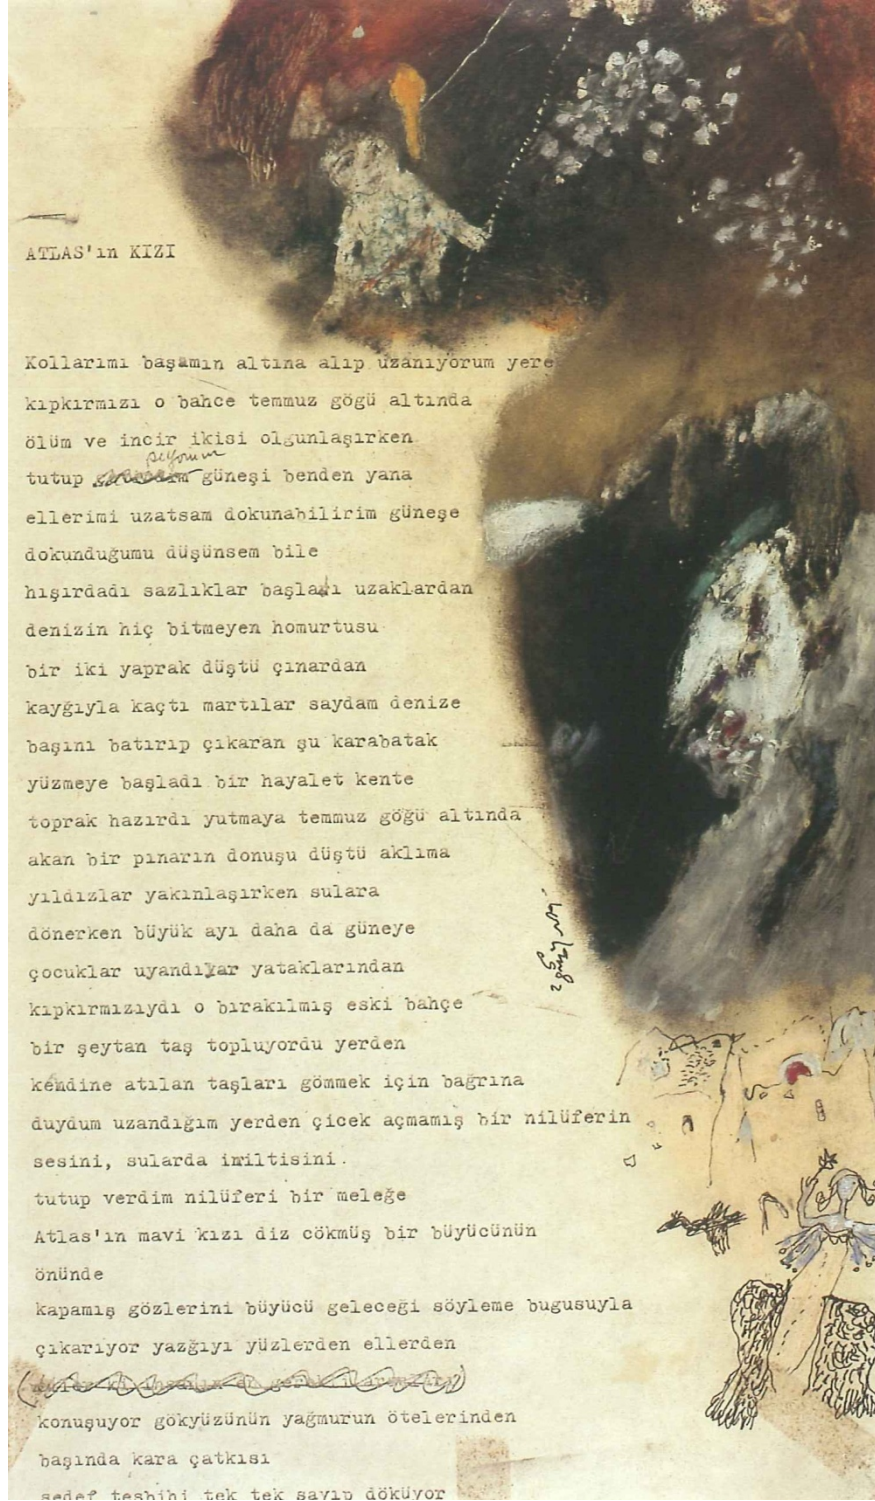 ATLAS'ın KIZI
Kollarımı başamın altına alıp uzanıyorum yere
kıpkırmızı o bahce temmuz gögü altında
ölüm ve incir ikisi olgunlaşırken
tutup güneşi benden yana
ellerimi uzatsam dokunabilirim güneşe
dokunduğumu düşünsem bile
hışırdadı sazlıklar başladı uzaklardan
denizin hiç bitmeyen homurtusu
bir iki yaprak düştü çınardan
kayğıyla kaçtı martılar saydam denize
başını batırıp çıkaran şu karabatak
yüzmeye başladı bir hayalet kente
toprak hazırdı yutmaya temmuz göğü altında
akan bir pınarın donuşu düştü aklıma
yıldızlar yakınlaşırken sulara
dönerken büyük ayı daha da güneye
çocuklar uyandılar yataklarından
kıpkırmızıydı o bırakılmış eski bahçe
bir şeytan taş topluyordu yerden
kendine atılan taşları gömmek için bağrına
duydum uzandığım yerden çicek açmamış bir nilüferin
sesini, sularda iniltisini.
tutup verdim nilüferi bir meleğe
Atlas'ın mavi kızı diz cökmüş bir büyücünün
önünde
kapamış gözlerini büyücü geleceği söyleme bugusuyla
çıkarıyor yazğıyı yüzlerden ellerden
konuşuyor gökyüzünün yağmurun ötelerinden
başında kara çatkısı
sedef tesbihi tek tek sayıp döküyor